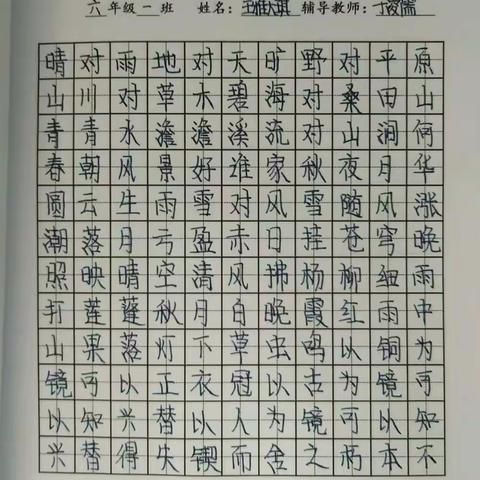 六年级一班 姓名: 辅导教师:
晴对雨地对天旷野对平原
山川对草木碧海对桑田山
青青水澹澹溪流对山涧何
春朝风景好谁家秋夜月华
圆云生雨雪对风雪随风涨
潮落月亏盈赤日挂苍穹晚
照映晴空清风拂杨柳细雨
打莲蓬秋月白晚霞红雨中
山果落灯下草虫鸣以铜为
镜可以正衣冠以古为镜可
以知兴替以人为镜可以知
兴替得失锲而舍之朽本不